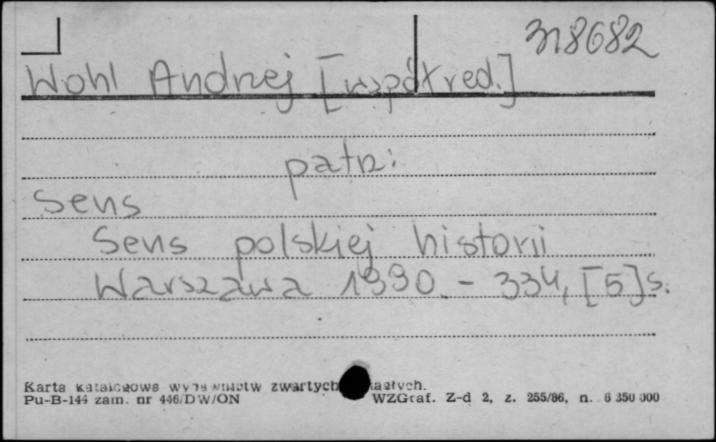 318682
Wohl Andrzej [współred.]
patrz:
Sens
Sens polskiej historii
Warszawa 1990. - 334, [5] s.
Karta katalogowa wydawnictw zwartych
Pu-B-144 zam. nr 446/DW/ON WZGraf. Z-d 2, z. 255/86, n. 6 350 000